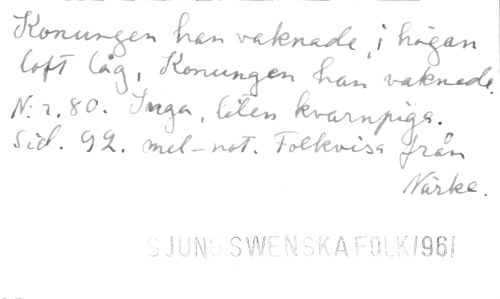 Konungen han vaknade, i högan
loft låg, Konungen han vaknade.
N:r. 80. Inga, liten kvarnpiga.
Sid. 92. mel-not. Folkvisa från
Närke.
SJUNG SWENSKA FOLK/1961